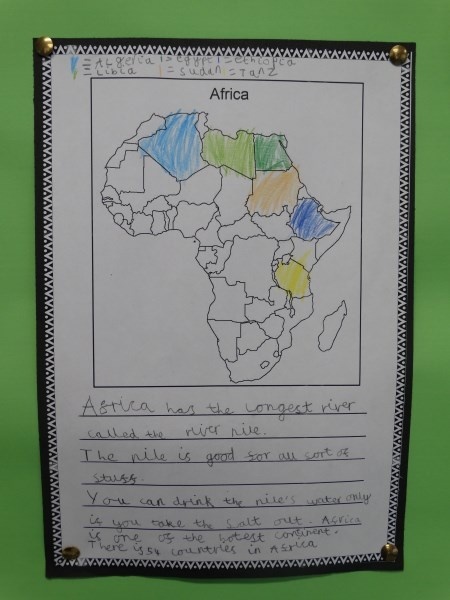 = Algeria = egypt = ethiopica
= Libia = Sudan = Tanz
Africa
Africa has the longest river
called the river nile.
The nile is good for all sort of
stuff.
You can drink the nile's water only
if you take the salt out. Africa
is one of the hotest continent.
There is 54 countries in Africa